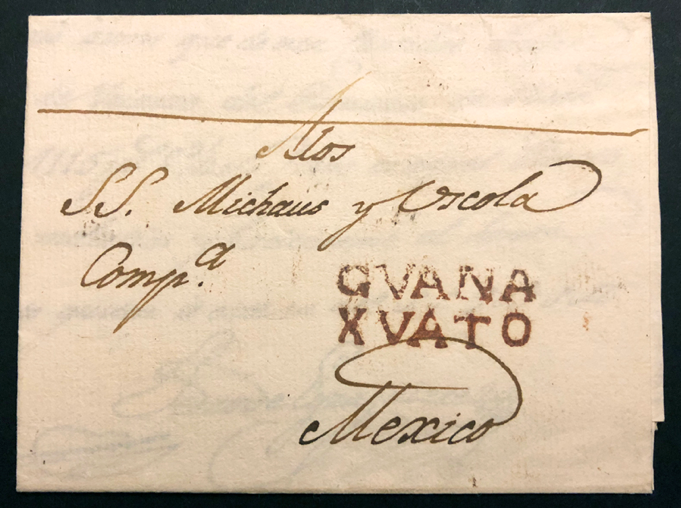 Alos
SS. Michaus y Uscola
Comp.ª
GVANA
XVATO
Mexico